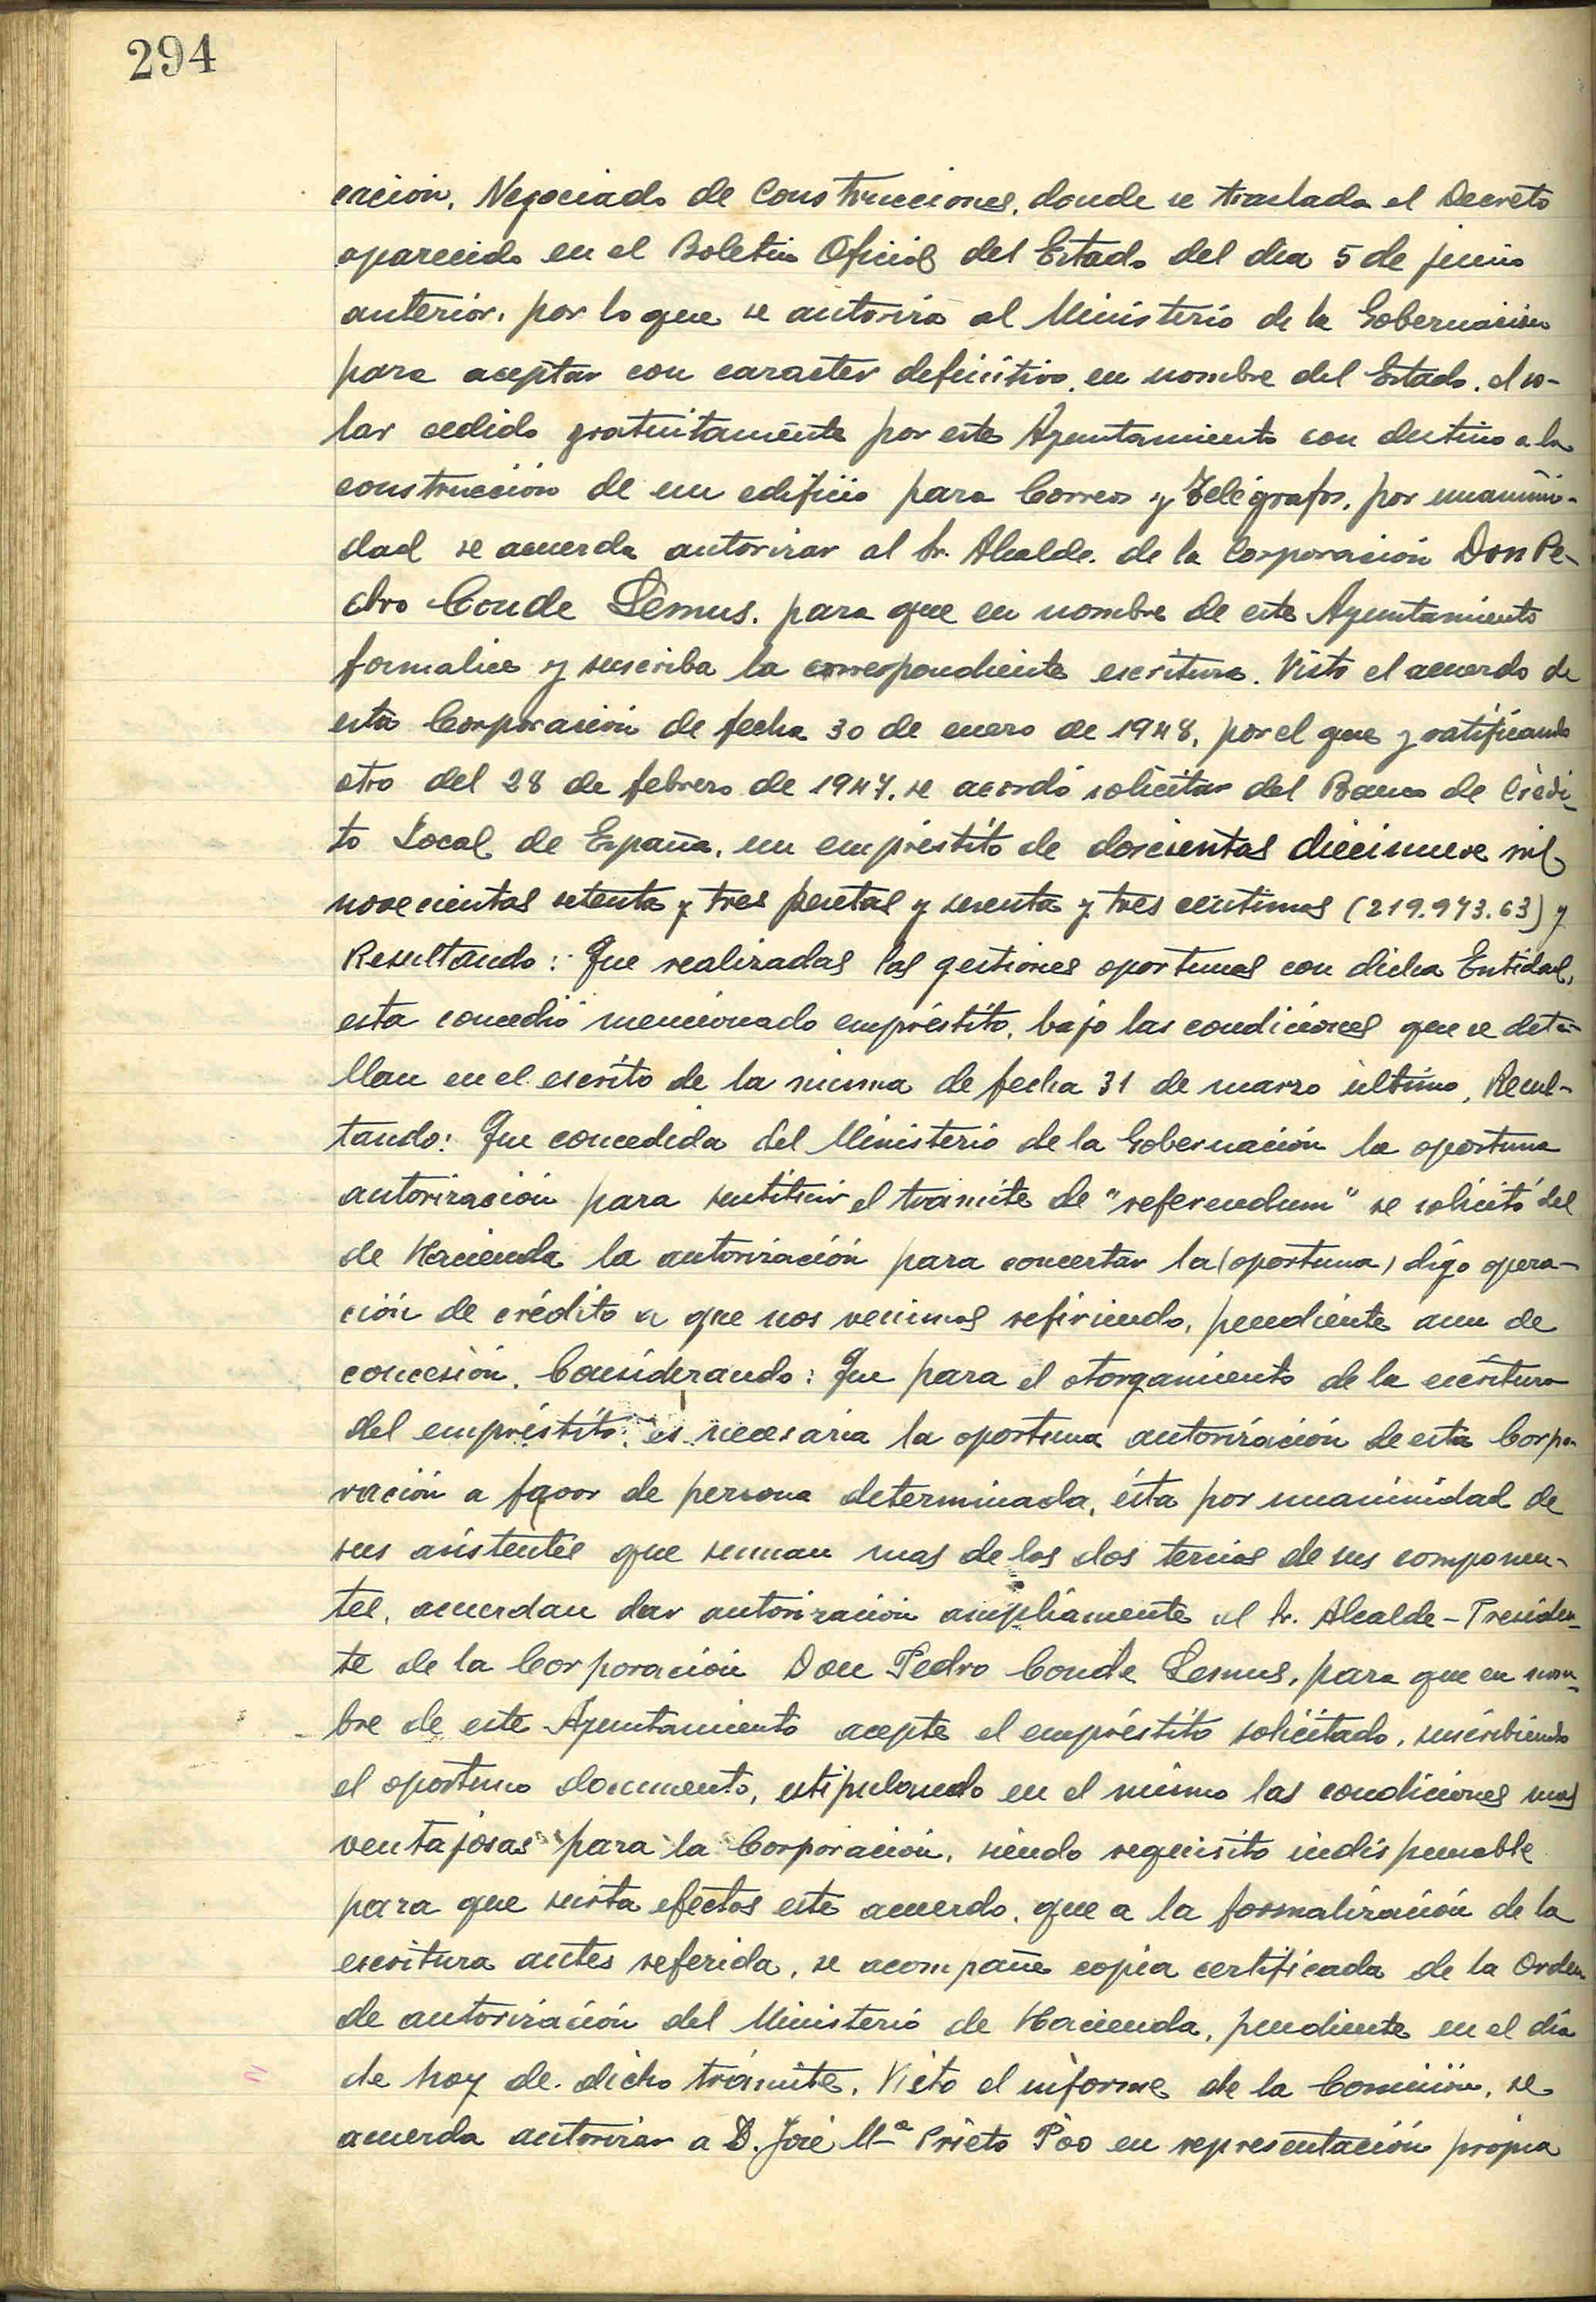 294
cación, Negociado de Construcciones, donde se traslada el Decreto
aparecido en el Boletin Oficial del Estado del dia 5 de junio
anterior, por lo que se autoriza al Ministerio de la Gobernación
para aceptar con caracter definitivo, en nombre del Estado, el so-
lar cedido gratuitamente por este Ayuntamiento con destino a la
construcción de un edificio para Correos y Telégrafos, por unanimi-
dad se acuerda autorizar al Sr. Alcalde. de la Corporación Don Pe-
dro Conde Lemus, para que en nombre de este Ayuntamiento
formalice y suscriba la correspondiente escritura. Visto el acuerdo de
esta Corporación de fecha 30 de enero de 1948, por el que y ratificando
otro del 28 de febrero de 1947, se acordó solicitar del Banco de Crédi-
to Local de España, un empréstito de doscientas diecinueve mil
novecientas setenta y tres pesetas y sesenta y tres centimos (219.973.63) y
Resultando: Que realizadas las gestiones oportunas con dicha Entidad,
esta concedió mencionado empréstito, bajo las condiciones que se deta-
llan en el escrito de la misma de fecha 31 de marzo último, Resul-
tando: Que concedida del Ministerio de la Gobernación la oportuna
autorización para sustituir el tramite de "referendum" se solicitó del
de Hacienda la autorización para concertar la (oportuna) digo opera-
ción de crédito a que nos venimos refiriendo, pendiente aun de
concesión. Considerando: Que para el otorgamiento de la escritura
del empréstito, es necesaria la oportuna autorización de esta Corpo-
ración a favor de persona determinada, ésta por unanimidad de
sus asistentes que suman mas de los dos tercios de sus componen-
tes, acuerdan dar autorización ampliamente al Sr. Alcalde-Presiden-
te de la Corporación Don Pedro Conde Lemus, para que en nom-
bre de este Ayuntamiento acepte el empréstito solicitado, suscribiendo
el oportuno documento, estipulando en el mismo las condiciones mas
ventajosas para la Corporación, siendo requisito indispensable
para que surta efectos este acuerdo, que a la formalización de la
escritura antes referida, se acompañe copia certificada de la Orden
de autorización del Ministerio de Hacienda, pendiente en el día
de hoy de dicho trámite. Visto el informe de la Comisión, se
acuerda autorizar a D. José Mª Prieto Póo en representación propia